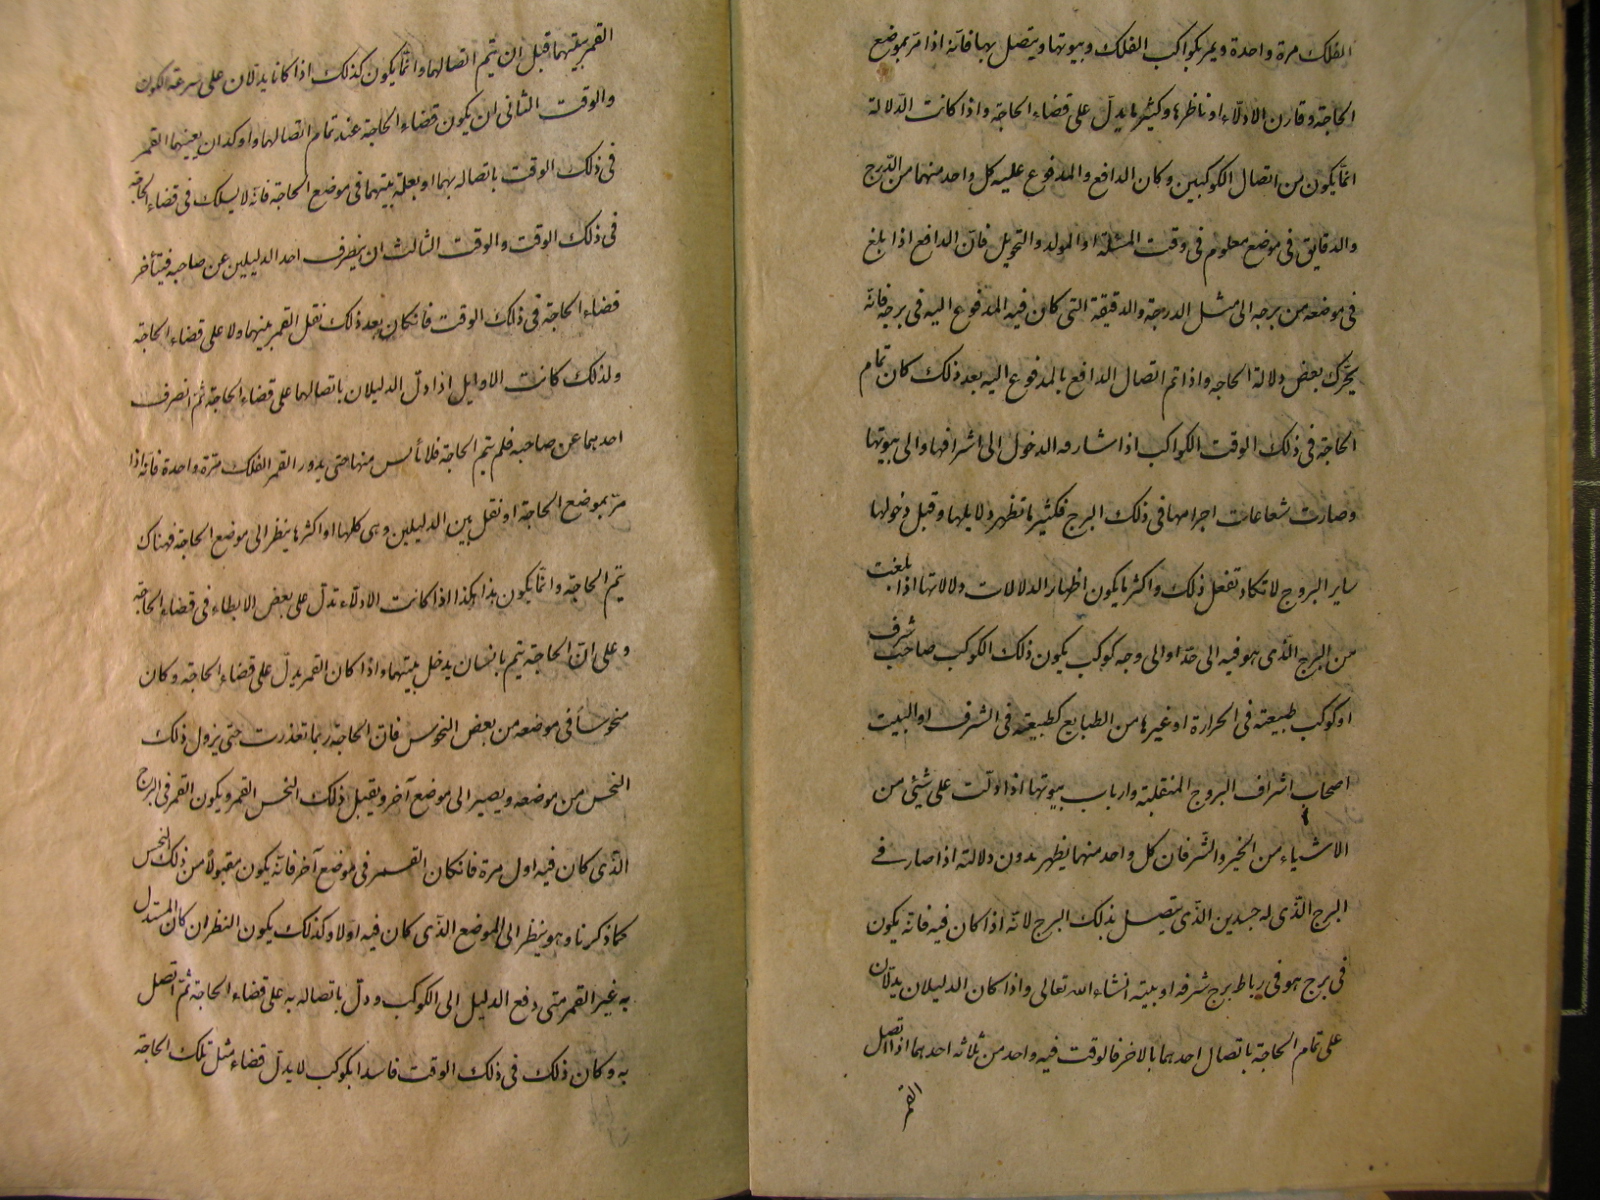 الفلك مرة واحدة ويمر بكواكب الفلك وبيوتها ويتصل بها فانه اذا مر بموضع
الحاجة وقارن الادلّاء او ناظرها وكثيرًا ما يدلّ على قضاء الحاجة واذا كانت الدّلالة
انّما يكون من اتصال الكوكبين وكان الدافع والمدفوع عليه كل واحد منهما من الدّرج
والدقايق فى موضع معلوم فى وقت المسئلة او المولد والتحويل فانّ الدافع اذا بلغ
فى موضعه من برجه الى مثل الدرجة والدقيقة التى كان فيه المدفوع اليه فى برجه فانّه
يحرّك بعض دلالة الحاجه واذا تم اتصال الدافع بالمدفوع اليه بعد ذلك كان تمام
الحاجة فى ذلك الوقت الكواكب اذا شارفه الدخول الى اشرافها والى بيوتها
وصارت شعاعات اجرامها فى ذلك البرج فكثيرًا ما تظهر دلايلها وقبل دخولها
ساير البروج لا تكاد تفعل ذلك واكثر ما يكون اظهار الدلالات دلالاتها اذا بلغت
من البرج الذّى هو فيه الى حدّ او الى وجه كوكب يكون ذلك الكوكب صاحب شرف
او كوكب طبيعته فى الحرارة او غيرها من الطبايع كطبيعته فى الشرف او البيت
اصحاب اشراف البروج المنقلبة وارباب بيوتها اذا دلّت على شيئى من
الاشياء من الخير والشّر فان كل واحد منها يظهر بدون دلالته اذا صار فى
البرج الذّى له جسدين الذّى يتصل بذلك البرج لانّه اذا كان فيه فانّه يكون
فى برج هو فى رباط برج شرفه او بيته انشاء الله تعالى واذا كان الدليلان يدلّان
على تمام الحاجة باتصال احدهما بالاخر فالوقت فيه واحد من ثلاثه احدهما اذا اتصل
القمر
القمر بيتهما قبل ان يتم اتصالهما وانّما يكون كذلك اذا كانا يدلّان على سرعة الكون
والوقت الثانى ان يكون قضاء الحاجة عند تمام اتصالهما واوكد ان يعينهما القمر
فى ذلك الوقت باتصاله بهما او بعلة بيتهما فى موضع الحاجة فانّه لا يسلك فى قضاء الحاجة
فى ذلك الوقت والوقت الثالث ان ينصرف احد الدليلين عن صاحبه فيتأخر
قضاء الحاجة فى ذلك الوقت فان كان بعد ذلك نقل القمر بينهما دلا على قضاء الحاجة
ولذلك كانت الاوايل اذا دلّ الدليلان باتصالهما على قضاء الحاجة ثمّ انصرف
احدهما عن صاحبه فلم يتم الحاجة فلا تأيس منها حتى يدور القمر الفلك مرّة واحدة فانّه اذا
مرّ بموضع الحاجة او نقل بين الدليلين وهى كلها او اكثرها ينظر الى موضع الحاجة فهناك
يتم الحاجة وانّما يكون هذا هكذا اذا كانت الادلّاء تدلّ على بعض الابطاء فى قضاء الحاجة
وعلى انّ الحاجة يتم بانسان يدخل بيتهما واذا كان القمر يدلّ على قضاء الحاجة وكان
منحوسًا فى موضعه من بعض النحوس فانّ الحاجة ربما تعذرت حتى يزول ذلك
النحس من موضعه ويصير الى موضع آخر ويقبل ذلك النحس القمر ويكون القمر فى البرج
الذّى كان فيه اول مرة فان كان القمر فى موضع آخر فانّه يكون مقبولا من ذلك النحس
كما ذكرنا وهو ينظر الى الموضع الذّى كان فيه اولا وكذلك يكون النظر ان كان المستدل
به غير القمر متى دفع الدليل الى الكوكب ودلّ باتصاله به على قضاء الحاجة ثمّ اتصل
به وكان ذلك فى ذلك الوقت فاسدا بكوكب لا يدلّ قضاء مثل تلك الحاجة